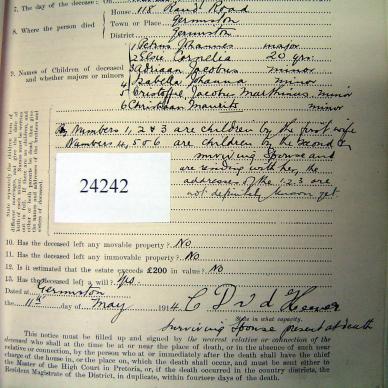 7. The day of the decease:
8. Where the person died
House 118 Rand Road
Town or Place Germiston
District Germiston
9. Names of Children of deceased and whether majors or minors
1 Petrus Johannes major
2 Elsie Cornelia 20 yrs.
3 Adriaan Jacobus minor
4 Isabella Johanna minor
5 Cristoffel Jacobus Marthinus minor
6 Christiaan Maurits minor
Numbers 1, 2 & 3 are children by the first wife
Numbers 4, 5 & 6 are children by the second &
surviving Spouse and
are residing with her, the
addresses of the 1 2 3 are
not definitely known yet
24242
10. Has the deceased left any movable property? No
11. Has the deceased left any immovable property? No
12. Is it estimated that the estate exceeds £200 in value? No
13. Has the deceased left a will? Yes.
Dated at Germiston
the 11th day of May 1914
State in what capacity.
Surviving Spouse present at death
This notice must be filled up and signed by the nearest relative or connection of the
deceased who shall at the time be at or near the place of death, or in the absence of such near
relative or connection, by the person who at or immediately after the death shall have the chief
charge of the house in, or the place on, which the death shall occur, and must be sent either to
the Master of the High Court in Pretoria, or, if the death occurred in the country districts, the
Resident Magistrate of the District, in duplicate, within fourteen days of the death.